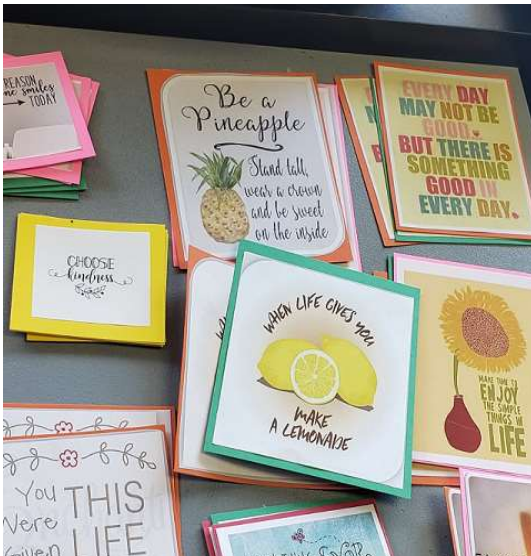 REASON
one smiles
TODAY
Be a
Pineapple
Stand tall,
wear a crown
and be sweet
on the inside
EVERY DAY
MAY NOT BE
GOOD.
BUT THERE IS
SOMETHING
GOOD IN
EVERY DAY.
CHOOSE
kindness
WHEN LIFE GIVES YOU
MAKE
A LEMONADE
MAKE TIME TO
ENJOY
THE SIMPLE
THINGS IN
LIFE
You
Were
Given
THIS
LIFE